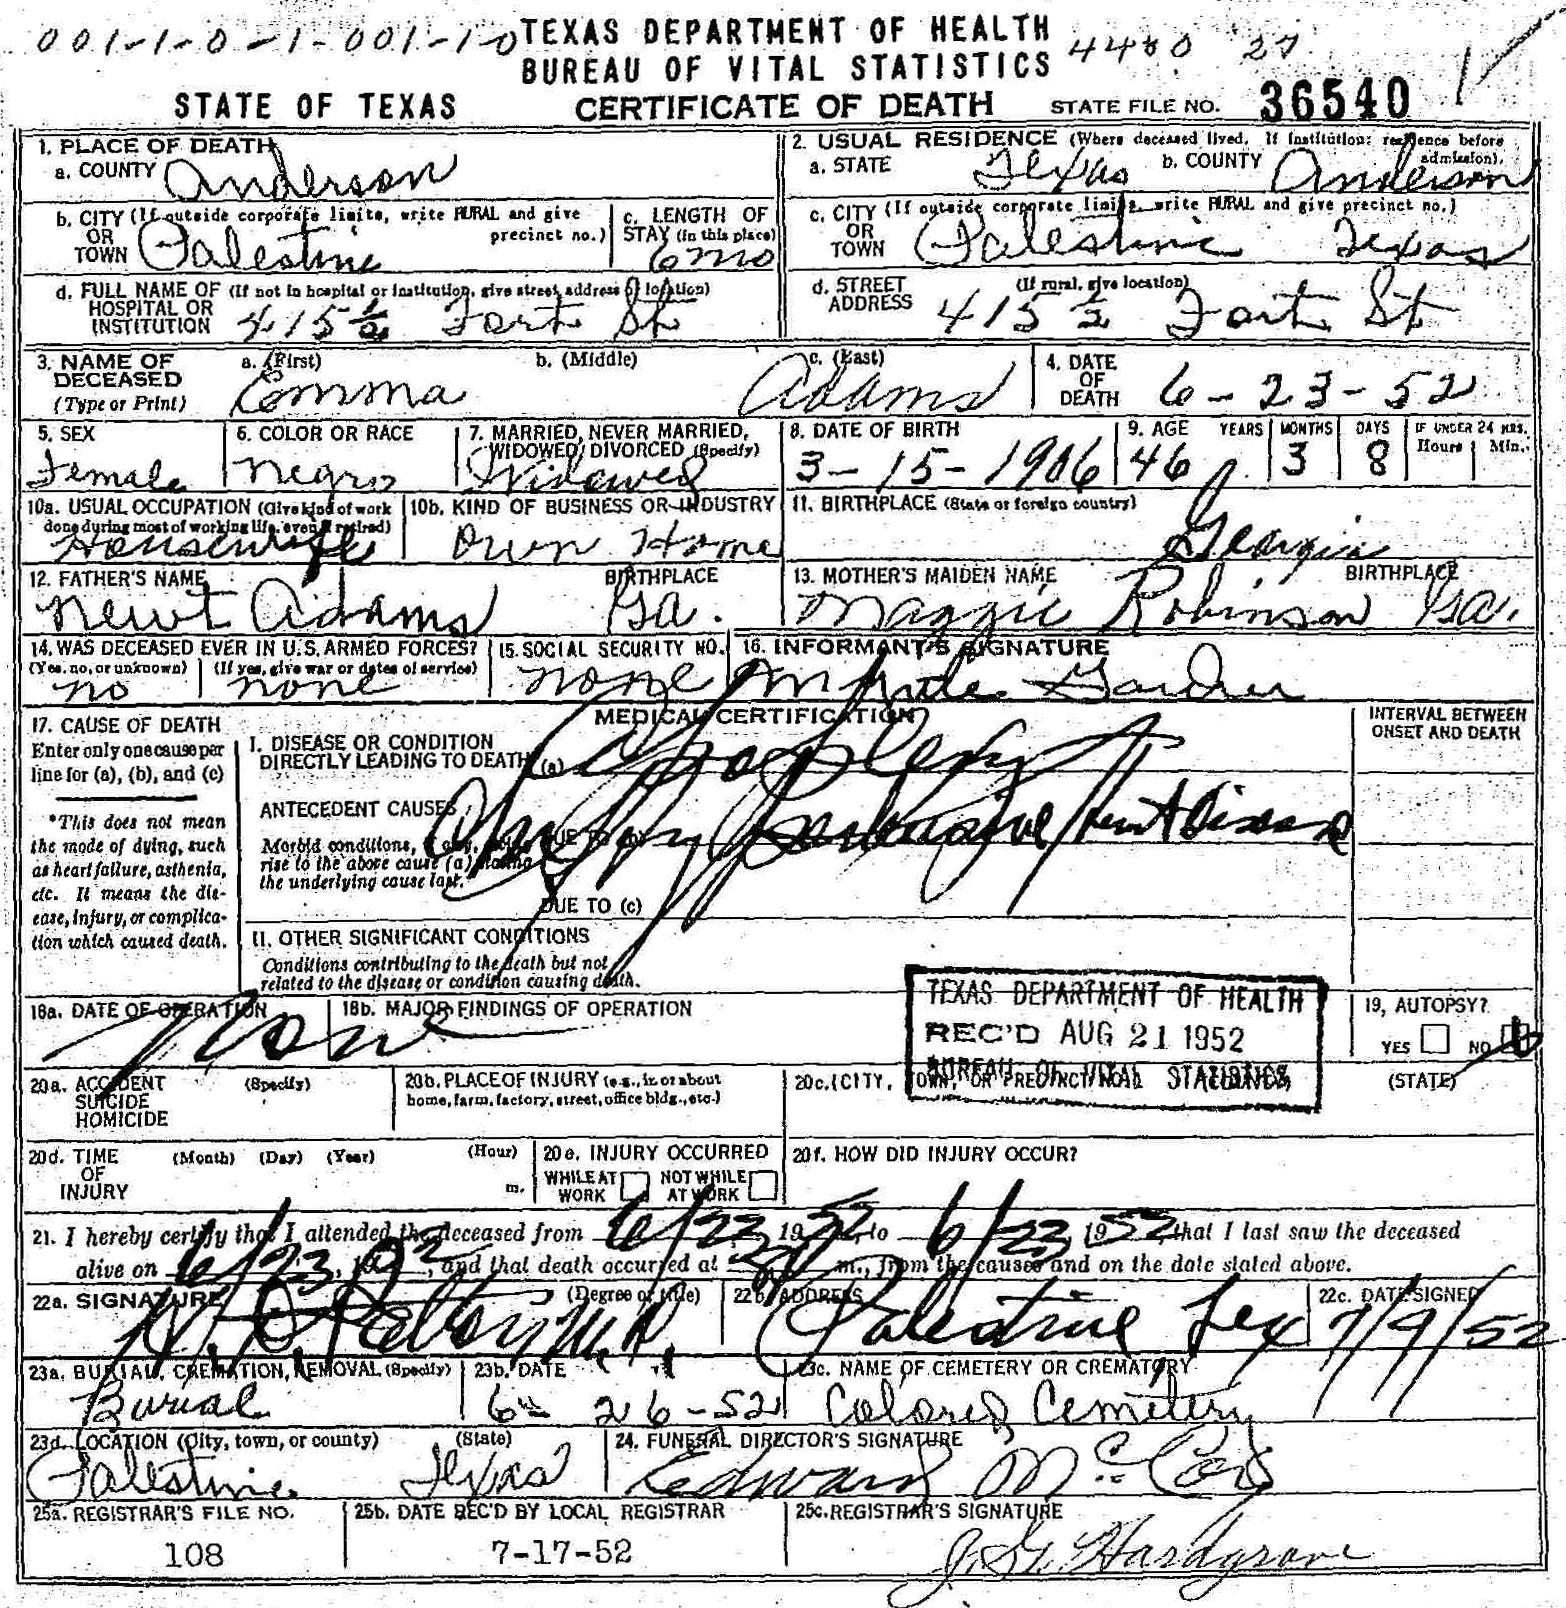 001-1-0-1-001-1-0 TEXAS DEPARTMENT OF HEALTH 4400 27
BUREAU OF VITAL STATISTICS
STATE OF TEXAS CERTIFICATE OF DEATH STATE FILE NO. 36540
1. PLACE OF DEATH
a. COUNTY Anderson
2. USUAL RESIDENCE (Where deceased lived. If institution: residence before admission).
a. STATE Texas b. COUNTY Anderson
b. CITY (If outside corporate limits, write RURAL and give precinct no.)
OR TOWN Palestine
c. LENGTH OF STAY (in this place) 6 mo
c. CITY (If outside corporate limits, write RURAL and give precinct no.)
OR TOWN Palestine Texas
d. FULL NAME OF (If not in hospital or institution, give street address or location)
HOSPITAL OR INSTITUTION 415 1/2 Fort St
d. STREET ADDRESS (If rural, give location)
415 1/2 Fort St
3. NAME OF DECEASED (Type or Print)
a. (First) Emma b. (Middle) c. (Last) Adams
4. DATE OF DEATH 6-23-52
5. SEX Female
6. COLOR OR RACE Negro
7. MARRIED, NEVER MARRIED, WIDOWED, DIVORCED (Specify) Widowed
8. DATE OF BIRTH 3-15-1906
9. AGE YEARS 46 MONTHS 3 DAYS 8 IF UNDER 24 HRS. Hours Min.
10a. USUAL OCCUPATION (Give kind of work done during most of working life, even if retired) Housewife
10b. KIND OF BUSINESS OR INDUSTRY Own Home
11. BIRTHPLACE (State or foreign country) Georgia
12. FATHER'S NAME Newt Adams BIRTHPLACE Ga.
13. MOTHER'S MAIDEN NAME Maggie Robinson BIRTHPLACE Ga.
14. WAS DECEASED EVER IN U.S. ARMED FORCES?
(Yes, no, or unknown) no (If yes, give war or dates of service) none
15. SOCIAL SECURITY NO. none
16. INFORMANT'S SIGNATURE
MEDICAL CERTIFICATION
INTERVAL BETWEEN ONSET AND DEATH
17. CAUSE OF DEATH
Enter only one cause per line for (a), (b), and (c)
*This does not mean the mode of dying, such as heart failure, asthenia, etc. It means the disease, injury, or complication which caused death.
I. DISEASE OR CONDITION DIRECTLY LEADING TO DEATH (a) Apoplexy
ANTECEDENT CAUSES
Morbid conditions, if any, giving rise to the above cause (a) stating the underlying cause last.
DUE TO (b) Hypertensive Heart Disease
DUE TO (c)
II. OTHER SIGNIFICANT CONDITIONS
Conditions contributing to the death but not related to the disease or condition causing death.
18a. DATE OF OPERATION None
18b. MAJOR FINDINGS OF OPERATION
TEXAS DEPARTMENT OF HEALTH
REC'D AUG 21 1952
BUREAU OF VITAL STATISTICS
19. AUTOPSY?
YES NO
20a. ACCIDENT SUICIDE HOMICIDE (Specify)
20b. PLACE OF INJURY (e.g., in or about home, farm, factory, street, office bldg., etc.)
20c. (CITY, TOWN, OR PRECINCT NO.) (COUNTY) (STATE)
20d. TIME OF INJURY (Month) (Day) (Year) (Hour) m.
20e. INJURY OCCURRED
WHILE AT WORK NOT WHILE AT WORK
20f. HOW DID INJURY OCCUR?
21. I hereby certify that I attended the deceased from 6/22, 1952, to 6/23, 1952, that I last saw the deceased
alive on 6/23, 1952, and that death occurred at m., from the causes and on the date stated above.
22a. SIGNATURE (Degree or title) M.D.
22b. ADDRESS Palestine Tex
22c. DATE SIGNED 7/9/52
23a. BURIAL, CREMATION, REMOVAL (Specify) Burial
23b. DATE 6-26-52
23c. NAME OF CEMETERY OR CREMATORY Colored Cemetery
23d. LOCATION (City, town, or county) (State)
Palestine Texas
24. FUNERAL DIRECTOR'S SIGNATURE
Edward McCoy
25a. REGISTRAR'S FILE NO. 108
25b. DATE REC'D BY LOCAL REGISTRAR 7-17-52
25c. REGISTRAR'S SIGNATURE J. G. Hardgrove